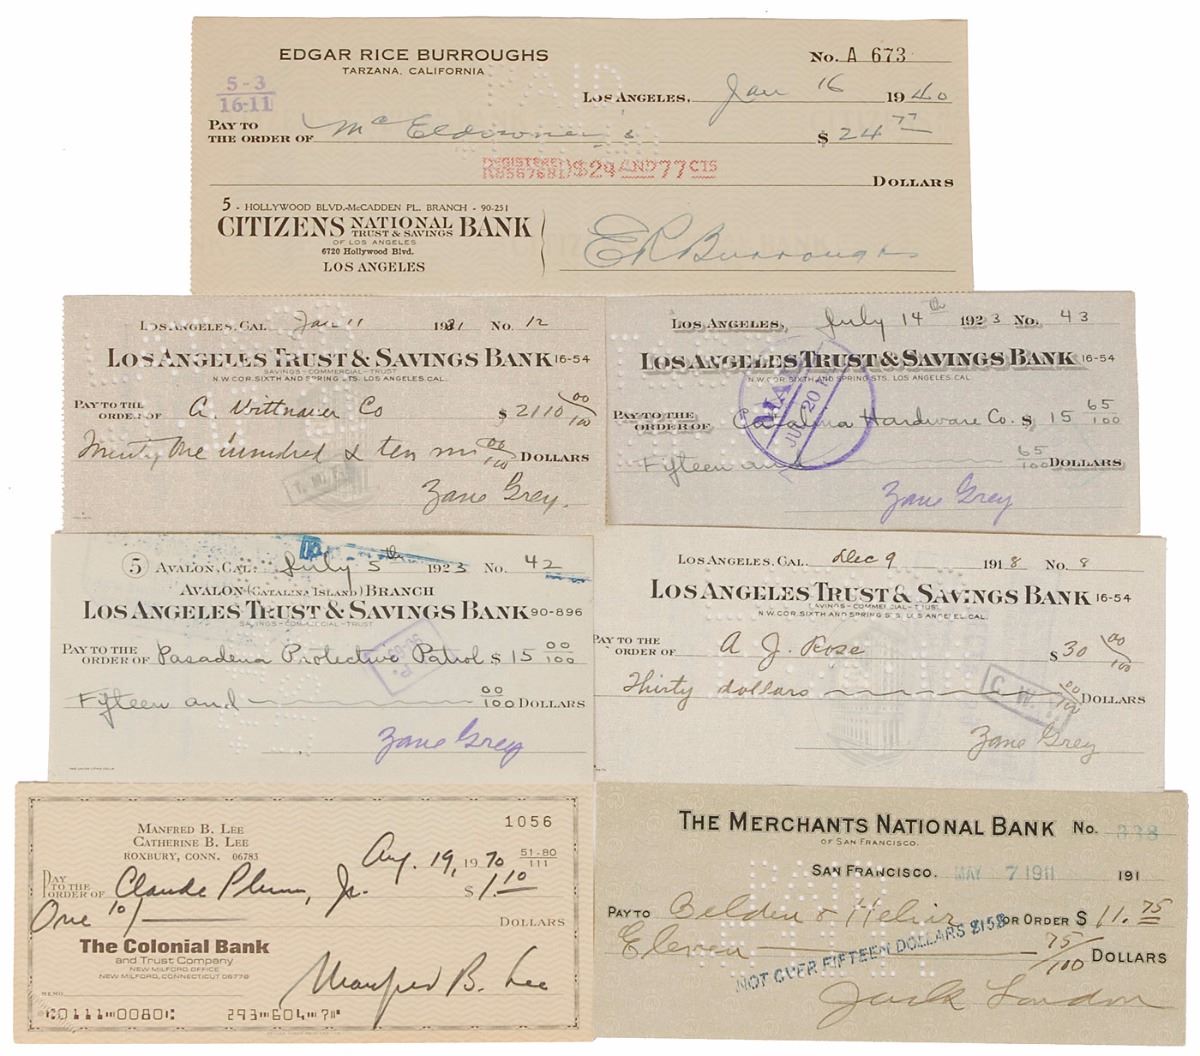 EDGAR RICE BURROUGHS
TARZANA, CALIFORNIA
No. A 673
5-3
16-11
LOS ANGELES, Jan 16 1940
PAY TO
THE ORDER OF McEldowney's $ 24 77
REGISTERED
R8567681 $24 AND 77 CTS
DOLLARS
5 - HOLLYWOOD BLVD.-McCADDEN PL. BRANCH - 90-251
CITIZENS NATIONAL TRUST & SAVINGS BANK
OF LOS ANGELES
6720 Hollywood Blvd.
LOS ANGELES
E R Burroughs
LOS ANGELES, CAL. Jan 11 1921 No. 12
LOS ANGELES TRUST & SAVINGS BANK 16-54
SAVINGS-COMMERCIAL-TRUST
N.W. COR. SIXTH AND SPRING STS. LOS ANGELES, CAL.
PAY TO THE
ORDER OF A. Wittnauer Co $ 2110 00/100
Twenty One hundred & ten no 00/100 DOLLARS
Zane Grey.
LOS ANGELES, July 14th 1923 No. 43
LOS ANGELES TRUST & SAVINGS BANK 16-54
N.W. COR. SIXTH AND SPRING STS. LOS ANGELES, CAL.
PAY TO THE
ORDER OF Catalina Hardware Co. $ 15 65/100
Fifteen and 65/100 DOLLARS
Zane Grey
5 AVALON, CAL. July 5th 1923 No. 42
AVALON (CATALINA ISLAND) BRANCH
LOS ANGELES TRUST & SAVINGS BANK 90-896
SAVINGS-COMMERCIAL-TRUST
PAY TO THE
ORDER OF Pasadena Protective Patrol $ 15 00/100
Fifteen and 00/100 DOLLARS
Zane Grey
LOS ANGELES, CAL. Dec 9 1918 No. 8
LOS ANGELES TRUST & SAVINGS BANK 16-54
SAVINGS-COMMERCIAL-TRUST
N.W. COR. SIXTH AND SPRING STS. LOS ANGELES, CAL.
PAY TO THE
ORDER OF A J. Rose $ 30 00/100
Thirty dollars 00/100 DOLLARS
Zane Grey
MANFRED B. LEE
CATHERINE B. LEE
ROXBURY, CONN. 06783
1056
Aug. 19, 1970 51-80/111
PAY
TO THE
ORDER OF Claude Plum, Jr. $ 1.10
One 10/ DOLLARS
The Colonial Bank
and Trust Company
NEW MILFORD OFFICE
NEW MILFORD, CONNECTICUT 06776
MEMO
Manfred B. Lee
0111 0080 293 604 7
THE MERCHANTS NATIONAL BANK No. 338
OF SAN FRANCISCO.
SAN FRANCISCO. MAY 7 1911 191
PAY TO Belden & Hehir OR ORDER $ 11.75
Eleven 75/100 DOLLARS
NOT OVER FIFTEEN DOLLARS $15$
Jack London